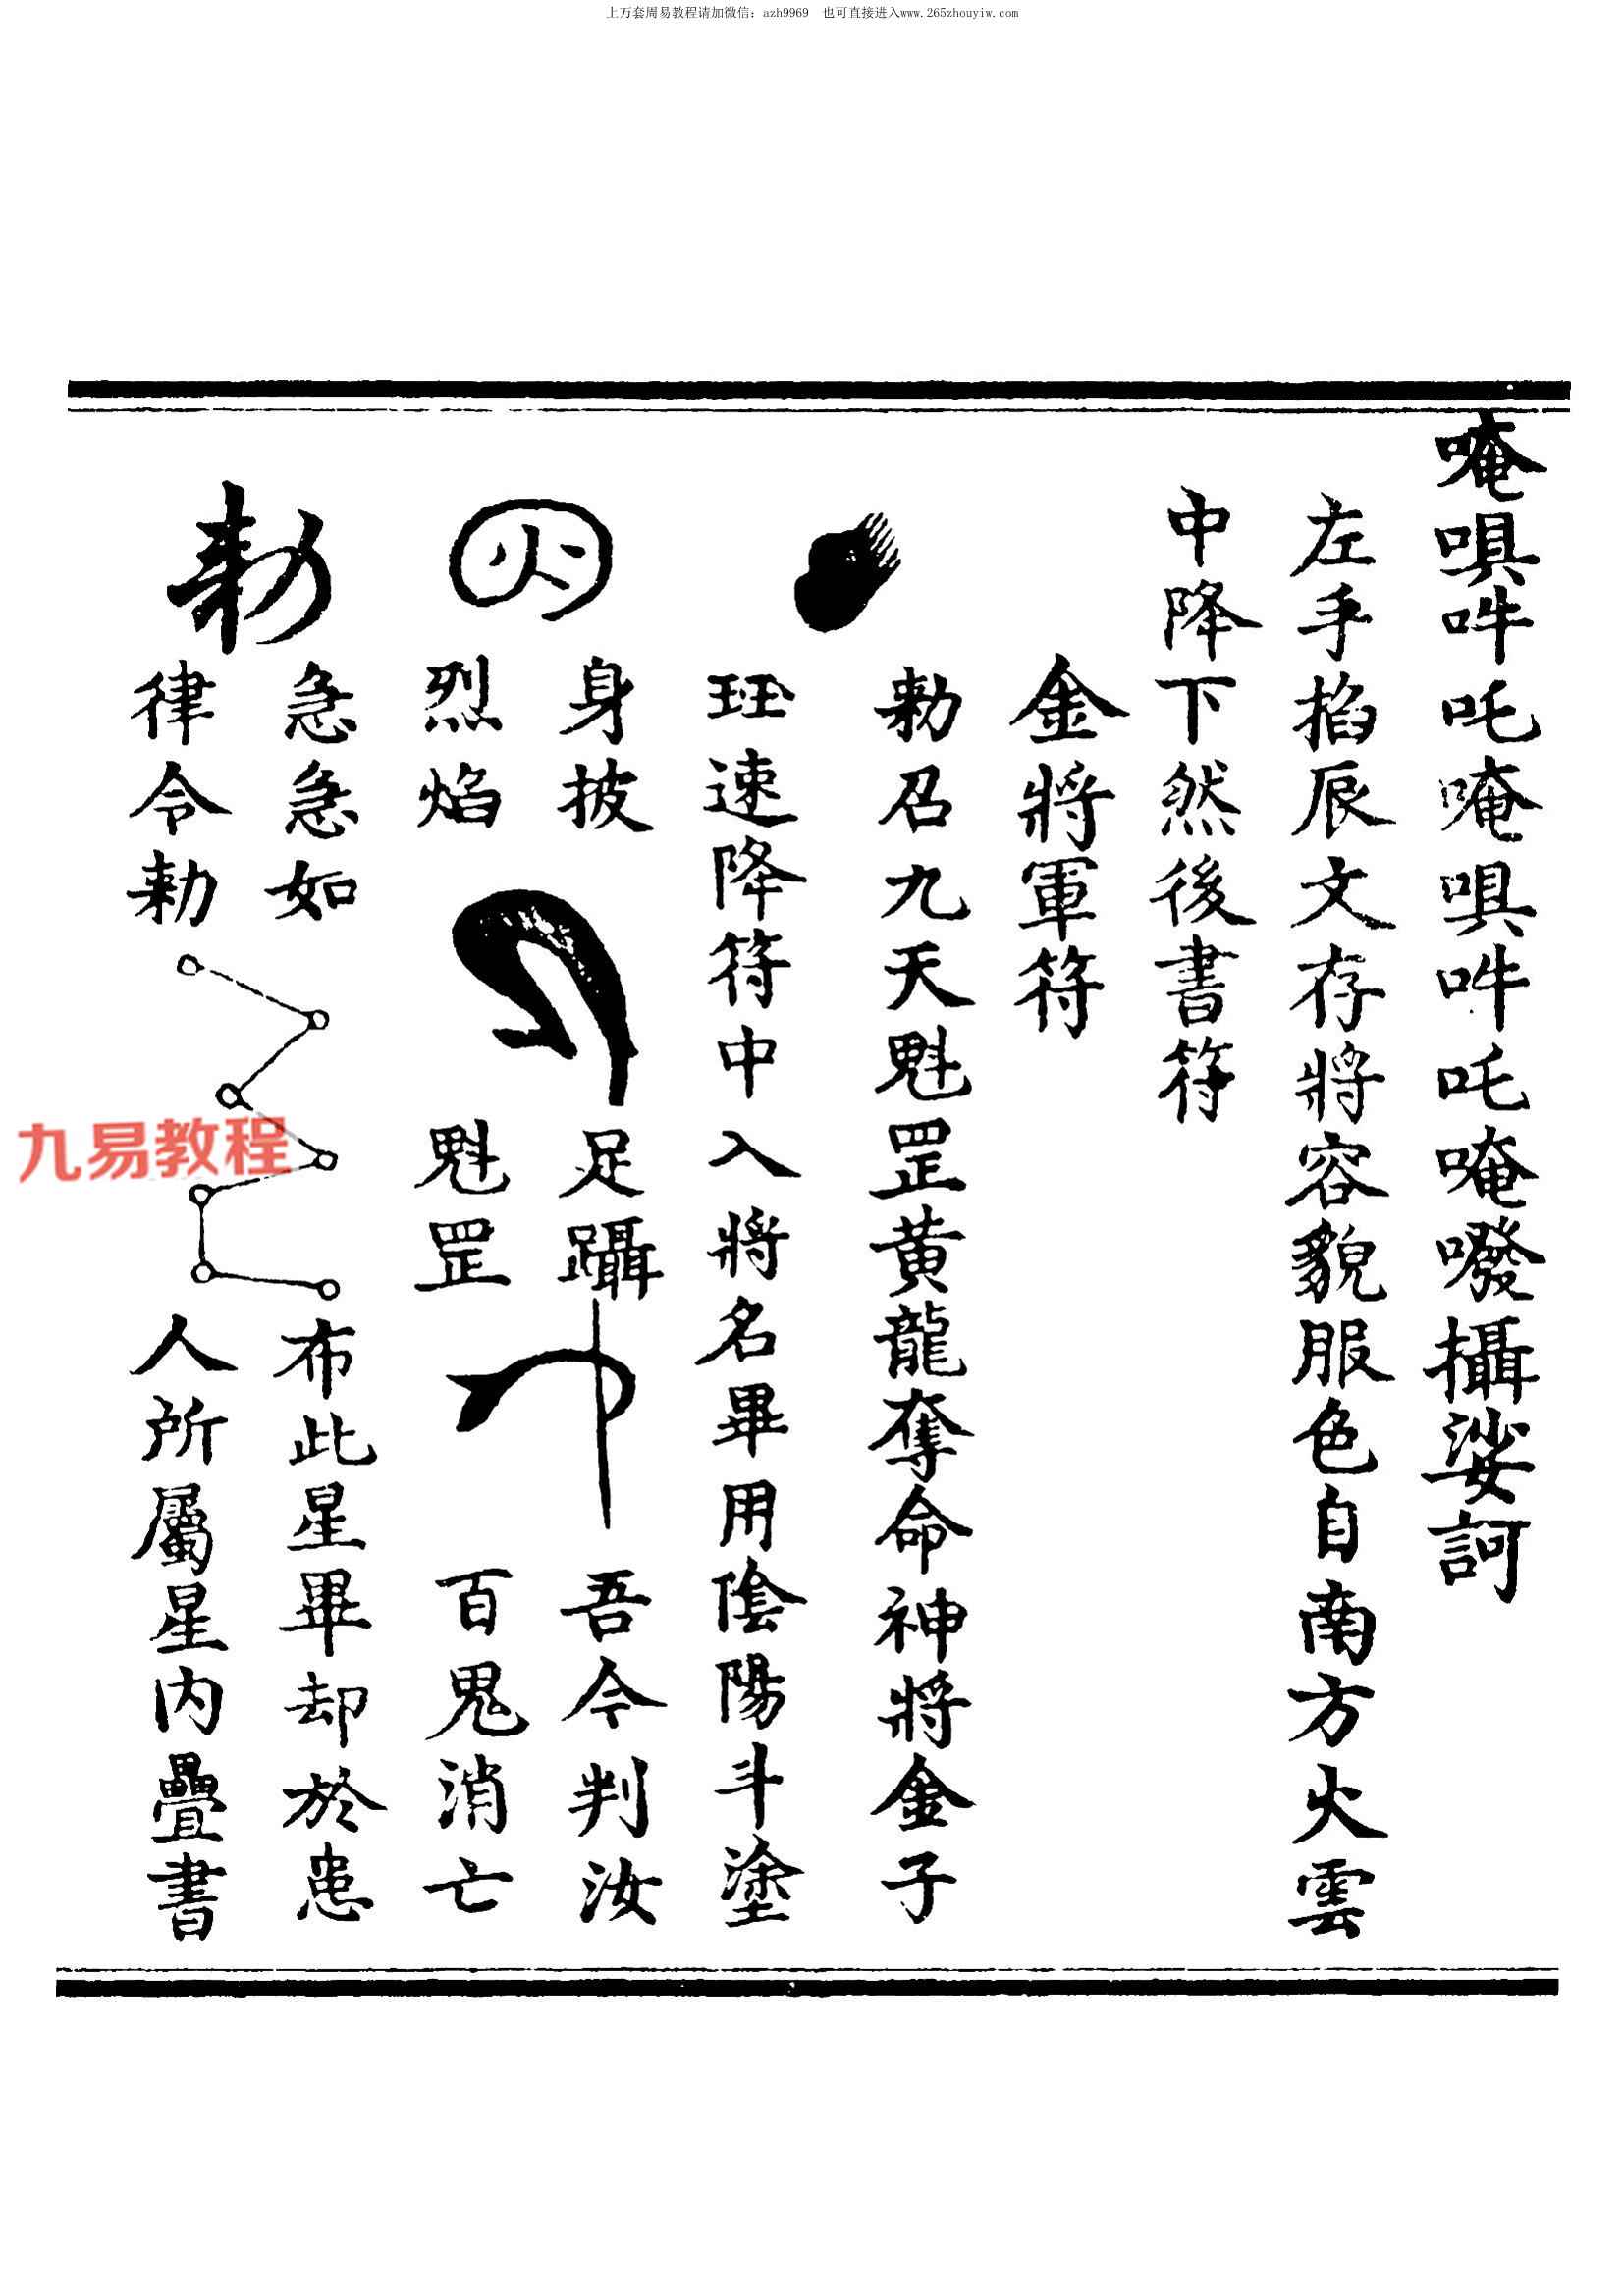 上万套周易教程请加微信：azh9969 也可直接进入www.265zhouyiw.com
唵唄吽吒唵唄吽吒唵噯攝娑訶
左手掐辰文存將容貌服色自南方火雲
中降下然後書符
金將軍符
勑召九天魁罡黄龍奪命神將金子
玨速降符中入將名畢用陰陽斗塗
身披
烈焰
火
足躡
魁罡
吾今判汝
百鬼消亡
勑
急急如
律令勑
布此星畢却於患
人所屬星内疊書
九易教程